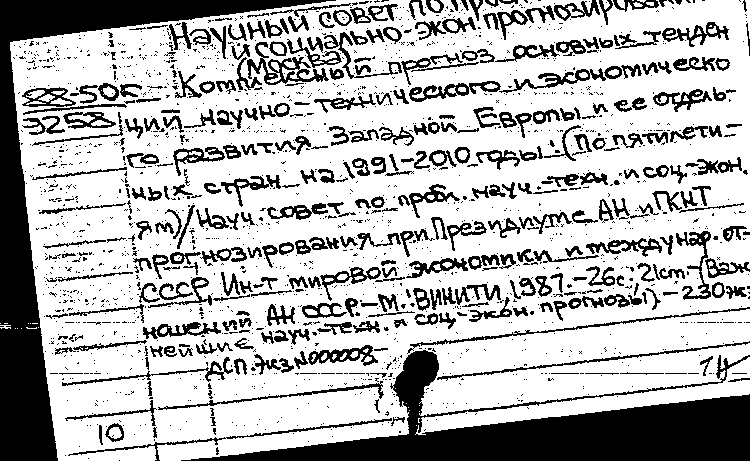 Научный совет по
и социально-экон прогнозирован
(Москва)
88-50г Комплексный прогноз основных тенден
3258 ций научно-технического и экономическо
го развития Западной Европы и ее отдель-
ных стран на 1991-2010 годы: (По пятилети-
ям)/ Науч. совет по пробл. науч.-техн. и соц.-экон.
прогнозирования при Президиуме АН и ГКНТ
СССР, Ин-т мировой экономики и междунар. от-
ношений АН СССР.-М.: ВИНИТИ, 1987.-26с.; 21cm.-(Важ
нейшие науч.-техн. и соц.-экон. прогнозы).-230 экз
ДСП. Экз N000008
10